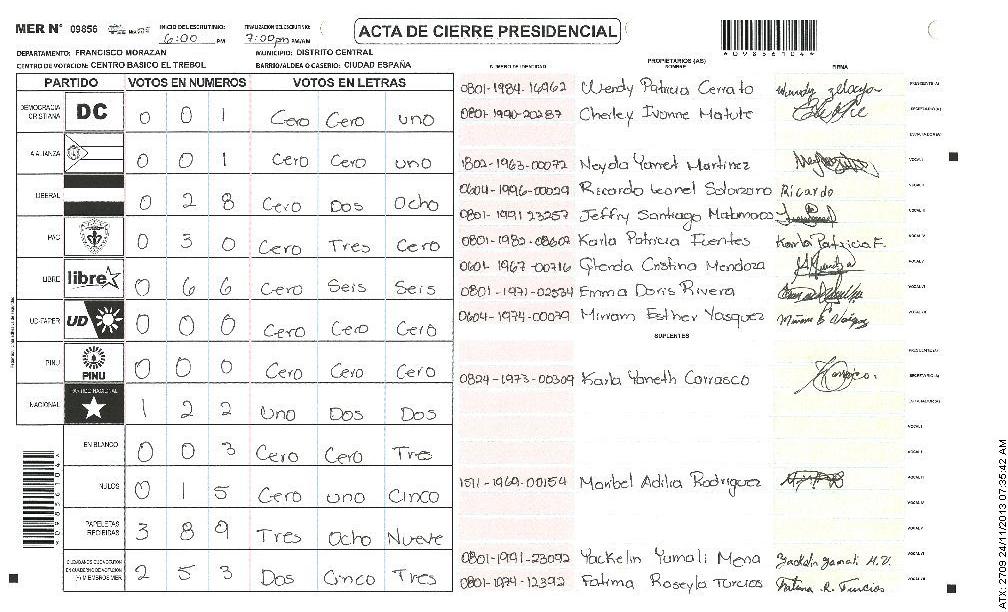 MER N° 09856 INICIO DEL ESCRUTINIO: 6:00 PM FINALIZACION DEL ESCRUTINIO: 7:00 pm PM/AM
ACTA DE CIERRE PRESIDENCIAL
*09856104*
DEPARTAMENTO: FRANCISCO MORAZAN MUNICIPIO: DISTRITO CENTRAL
CENTRO DE VOTACION: CENTRO BASICO EL TREBOL BARRIO/ALDEA O CASERIO: CIUDAD ESPAÑA
PARTIDO VOTOS EN NUMEROS VOTOS EN LETRAS
DEMOCRACIA CRISTIANA DC 0 0 1 Cero Cero uno
LA ALIANZA 0 0 1 Cero Cero uno
LIBERAL 0 2 8 Cero Dos Ocho
PAC 0 3 0 Cero Tres Cero
LIBRE libre 0 6 6 Cero Seis Seis
UD-FAPER UD 0 0 0 Cero Cero Cero
PINU PINU 0 0 0 Cero Cero Cero
NACIONAL PARTIDO NACIONAL 1 2 2 Uno Dos Dos
EN BLANCO 0 0 3 Cero Cero Tres
NULOS 0 1 5 Cero uno Cinco
PAPELETAS RECIBIDAS 3 8 9 Tres Ocho Nueve
CIUDADANOS QUE VOTARON EN CUADERNO DE VOTACION (+) MIEMBROS MER 2 5 3 Dos Cinco Tres
*09856104*
PROPIETARIOS (AS)
NUMERO DE IDENTIDAD NOMBRE FIRMA
0801-1984-16962 Wendy Patricia Cerrato PRESIDENTE (A)
0801-1990-20287 Cherley Ivonne Matute SECRETARIO (A)
ESCRUTADOR (A)
1802-1963-00072 Neyda Yamet Martinez VOCAL I
0604-1996-00029 Ricardo Leonel Solorzano Ricardo VOCAL II
0801-1991 23257 Jeffry Santiago Matamoros VOCAL III
0801-1982-08602 Karla Patricia Fuentes Karla Patricia F. VOCAL IV
0601-1967-00716 Glenda Cristina Mendoza VOCAL V
0801-1971-02534 Emma Doris Rivera VOCAL VI
0604-1974-00079 Miriam Esther Vasquez VOCAL VII
SUPLENTES
PRESIDENTE (A)
0824-1973-00309 Karla Yaneth Carrasco SECRETARIO (A)
ESCRUTADOR (A)
VOCAL I
VOCAL II
1511-1969-00154 Maribel Adilia Rodriguez VOCAL III
VOCAL IV
VOCAL V
0801-1991-23092 Yackelin Yamali Mena VOCAL VI
0801-1974-12392 Fatima Roseyla Turcios Fatima .R. Turcios VOCAL VII
ATX-2709 24/11/2013 07:35:42 AM